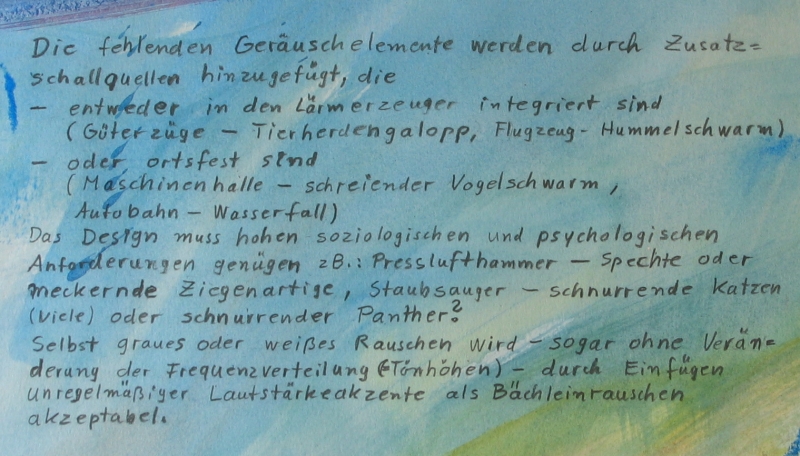 Die fehlenden Geräuschelemente werden durch Zusatz=
schallquellen hinzugefügt, die
– entweder in den Lärmerzeuger integriert sind
(Güterzüge – Tierherdengalopp, Flugzeug- Hummelschwarm)
– oder ortsfest sind
(Maschinenhalle – schreiender Vogelschwarm,
Autobahn – Wasserfall)
Das Design muss hohen soziologischen und psychologischen
Anforderungen genügen zB.: Presslufthammer – Spechte oder
meckernde Ziegenartige, Staubsauger – schnurrende Katzen
(viele) oder schnurrender Panther?
Selbst graues oder weißes Rauschen wird – sogar ohne Verän=
derung der Frequenzverteilung (=Tonhöhen) – durch Einfügen
unregelmäßiger Lautstärkeakzente als Bächleinrauschen
akzeptabel.